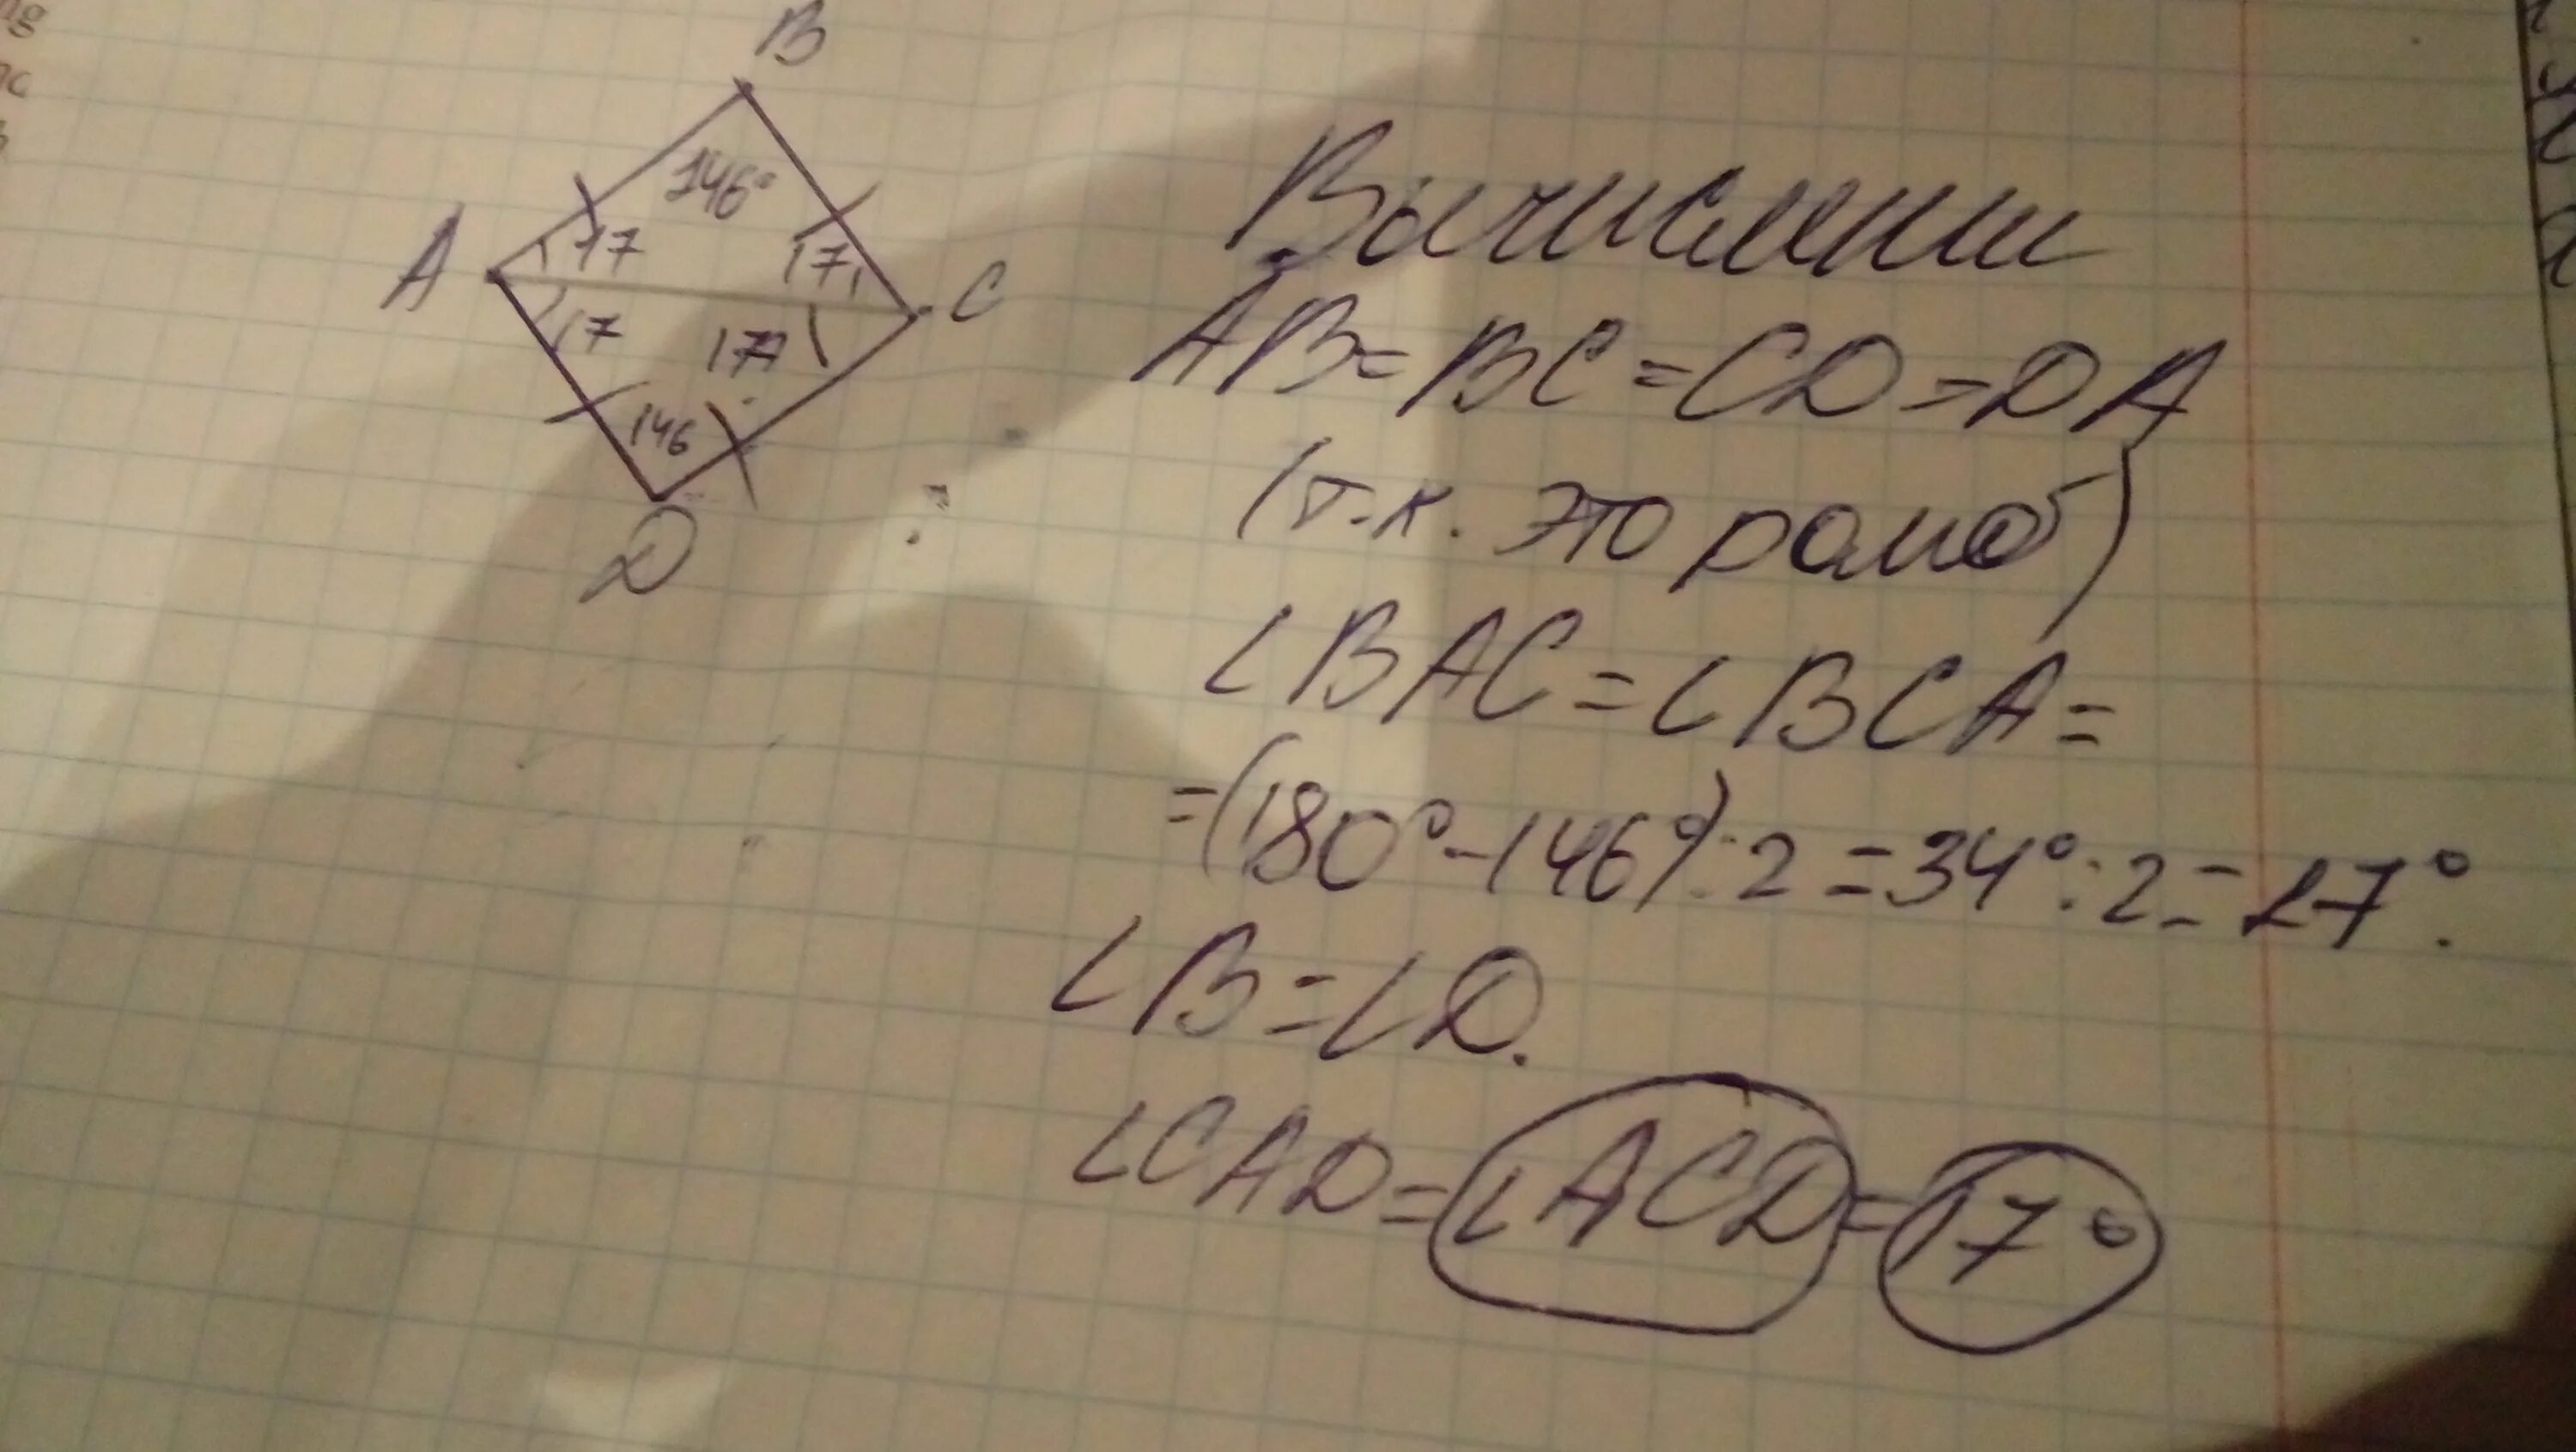 B
146°
A
17
17
C
17
17
146
D
Вычислении
AB=BC=CD=DA
(т.к. это ромб)
∠BAC=∠BCA=
=(180°-146°):2=34°:2=17°.
∠B=∠D.
∠CAD=∠ACD=17°